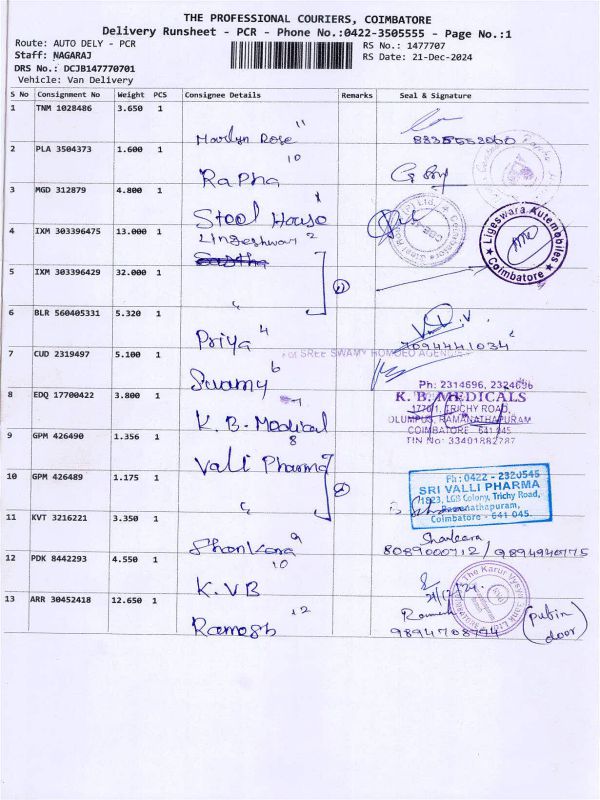 THE PROFESSIONAL COURIERS, COIMBATORE
Delivery Runsheet - PCR - Phone No.:0422-3505555 - Page No.:1
Route: AUTO DELY - PCR
RS No.: 1477707
Staff: NAGARAJ
RS Date: 21-Dec-2024
DRS No.: DCJB147770701
Vehicle: Van Delivery
S No Consignment No Weight PCS Consignee Details Remarks Seal & Signature
1 TNM 1028486 3.650 1
Marlyn Rose 11
2 PLA 3504373 1.600 1
Rapha 10
3 MGD 312879 4.800 1
Steel House
4 IXM 303396475 13.000 1
Lingeshwar 2
Ligeswara Automobiles
Coimbatore
5 IXM 303396429 32.000 1
6 BLR 560405331 5.320 1
Priya 4
7094441034
7 CUD 2319497 5.100 1
For SREE SWAMY HOMOEO AGENCIES
Swamy 6
8 EDQ 17700422 3.800 1
K. B. Medical
Ph: 2314696, 2324696
K. B. MEDICALS
1770/1, TRICHY ROAD,
OLUMPUS, RAMANATHAPURAM
COIMBATORE - 641 045
TIN No: 33401882787
9 GPM 426490 1.356 1
8
Valli Pharma
10 GPM 426489 1.175 1
Ph : 0422 - 2320545
SRI VALLI PHARMA
LGB Colony, Trichy Road,
Ramanathapuram,
Coimbatore - 641 045.
11 KVT 3216221 3.350 1
Shankara 9
8089000712 / 9894940775
12 PDK 8442293 4.550 1
K.VB 10
The Karur Vysya Bank Ltd
13 ARR 30452418 12.650 1
Ramesh 12
door